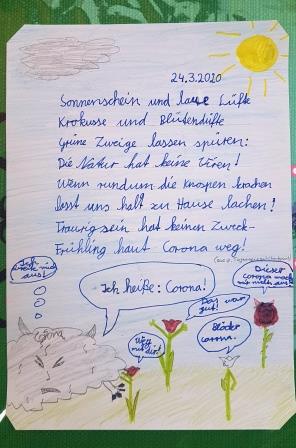 24.3.2020
Sonnenschein und laue Lüfte
Krokusse und Blütendüfte
Grüne Zweige lassen spüren:
Die Natur hat keine Viren!
Wenn rundum die Knospen krachen
lasst uns halt zu Hause lachen!
Traurig sein hat keinen Zweck-
Frühling haut Corona weg!
Ich heiße: Corona!
Corona
Das war gut!
Weg mit dir!
Blöder Corona.
Dieser Corona macht mir nichts aus!